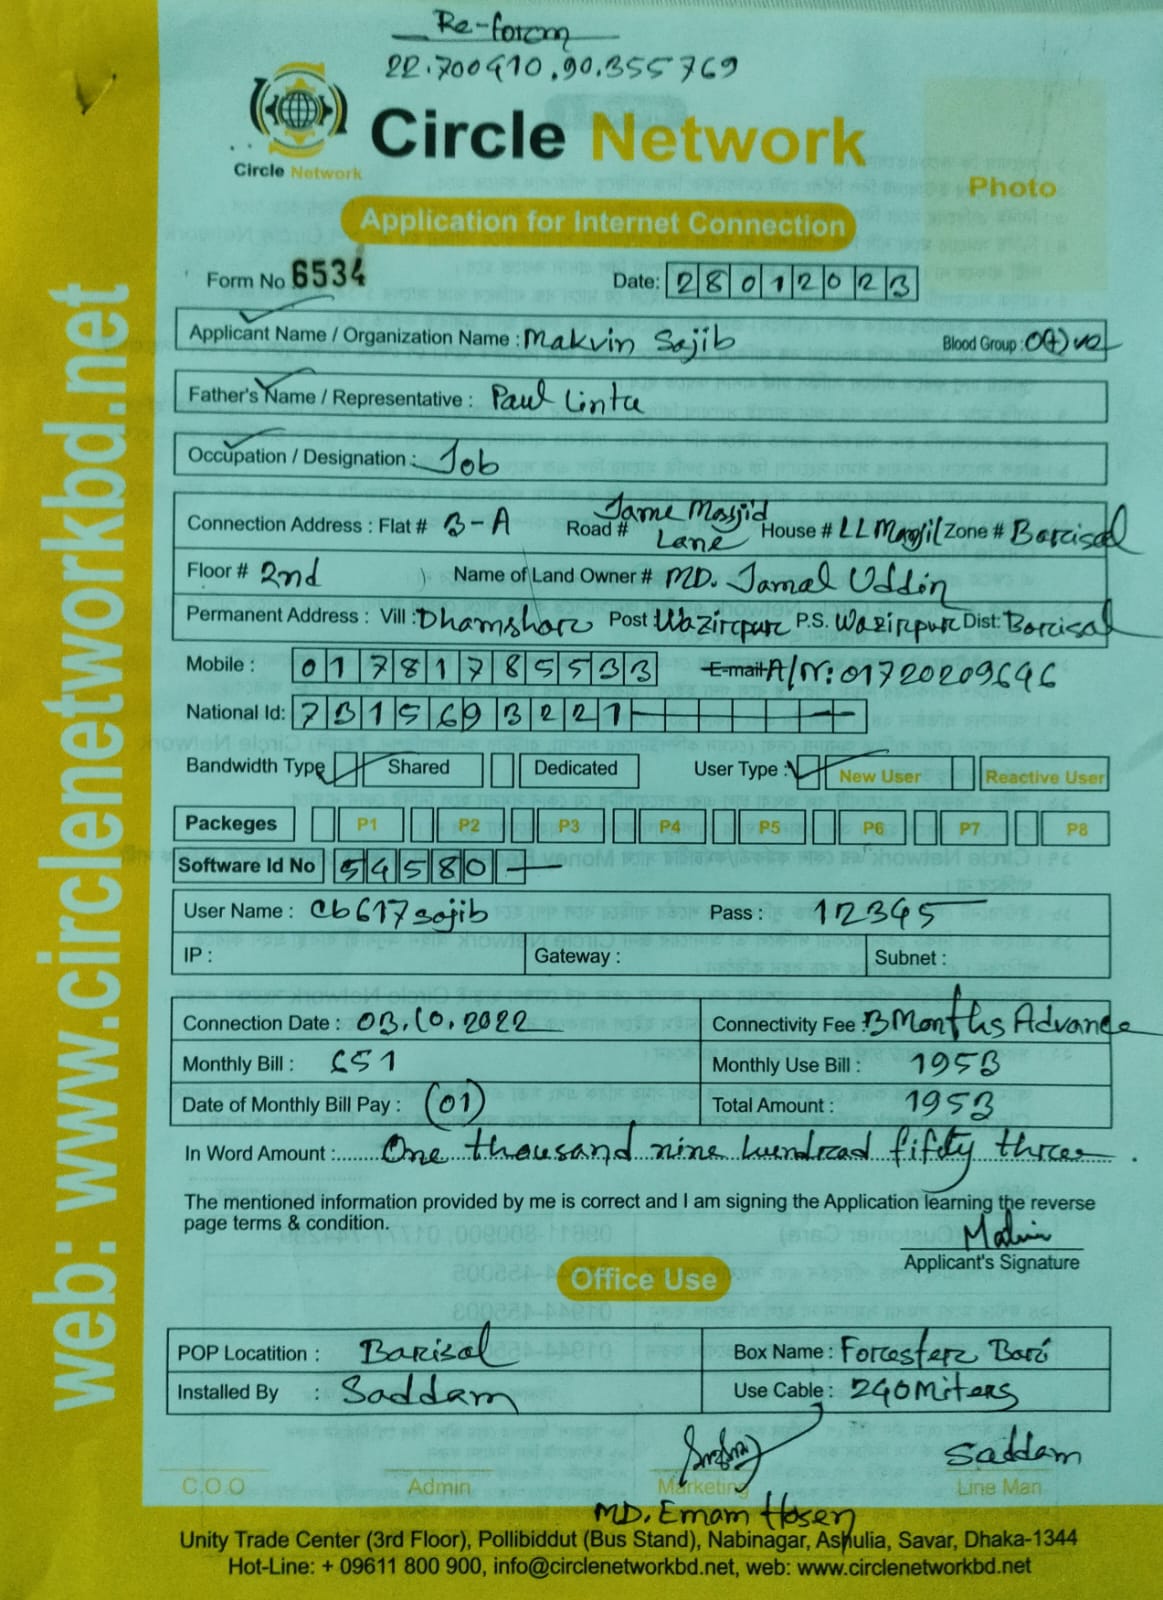 Re-form
22.700410,90.355769
Circle Network
Circle Network
Photo
Application for Internet Connection
Form No 6534 Date: 28012023
Applicant Name / Organization Name : Makvin Sajib Blood Group : O(+)ve
Father's Name / Representative : Paul Linta
Occupation / Designation : Job
Connection Address : Flat # 3-A Road # Jame Masjid Lane House # LL Manjil Zone # Barisal
Floor # 2nd Name of Land Owner # MD. Jamal Uddin
Permanent Address : Vill : Dhamshar Post Wazirpur P.S. Wazirpur Dist: Barisal
Mobile : 01781785533 E-mail A/N: 01720209646
National Id: 7315693221
Bandwidth Type Shared Dedicated User Type : New User Reactive User
Packeges P1 P2 P3 P4 P5 P6 P7 P8
Software Id No 54580
User Name : cb617sajib Pass : 12345
IP : Gateway : Subnet :
Connection Date : 03.10.2022 Connectivity Fee : 3 Months Advance
Monthly Bill : 651 Monthly Use Bill : 1953
Date of Monthly Bill Pay : (01) Total Amount : 1953
In Word Amount : One thousand nine hundred fifty three
The mentioned information provided by me is correct and I am signing the Application learning the reverse
page terms & condition.
Applicant's Signature
Office Use
POP Locatition : Barisal Box Name : Forester Bari
Installed By : Saddam Use Cable : 240 Miters
Saddam
C.O.O Admin Marketing Line Man
MD. Emam Hosen
Unity Trade Center (3rd Floor), Pollibiddut (Bus Stand), Nabinagar, Ashulia, Savar, Dhaka-1344
Hot-Line: + 09611 800 900, info@circlenetworkbd.net, web: www.circlenetworkbd.net
web: www.circlenetworkbd.net